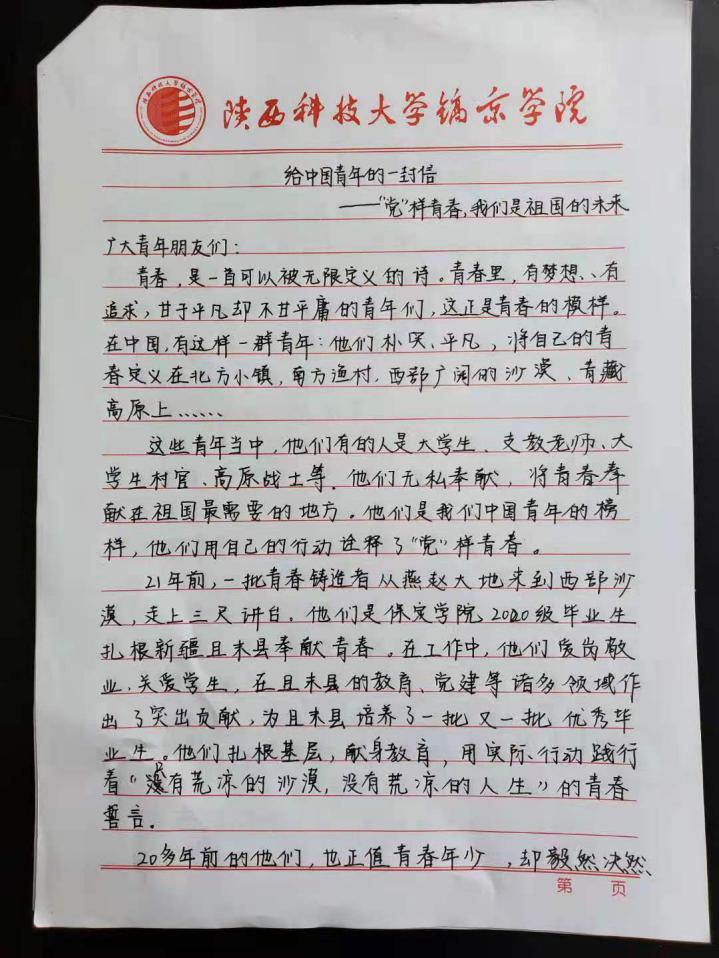 陕西科技大学镐京学院
陕西科技大学镐京学院
给中国青年的一封信
——“党”样青春,我们是祖国的未来
广大青年朋友们:
青春,是一首可以被无限定义的诗。青春里,有梦想、、有
追求,甘于平凡却不甘平庸的青年们,这正是青春的模样。
在中国,有这样一群青年:他们朴实、平凡,将自己的青
春定义在北方小镇,南方渔村、西部广阔的沙漠、青藏
高原上……
这些青年当中,他们有的人是大学生、支教老师、大
学生村官、高原战士等。他们无私奉献,将青春奉
献在祖国最需要的地方。他们是我们中国青年的榜
样,他们用自己的行动诠释了“党”样青春。
21年前,一批青春铸造者从燕赵大地来到西部沙
漠,走上三尺讲台。他们是保定学院2000级毕业生
扎根新疆且末县奉献青春。在工作中,他们爱岗敬
业、关爱学生,在且末县的教育、党建等诸多领域作
出了突出贡献,为且末县培养了一批又一批优秀毕
业生。他们扎根基层,献身教育,用实际行动践行
着“只有荒凉的沙漠,没有荒凉的人生”的青春
誓言。
20多年前的他们,也正值青春年少,却毅然决然
第 页